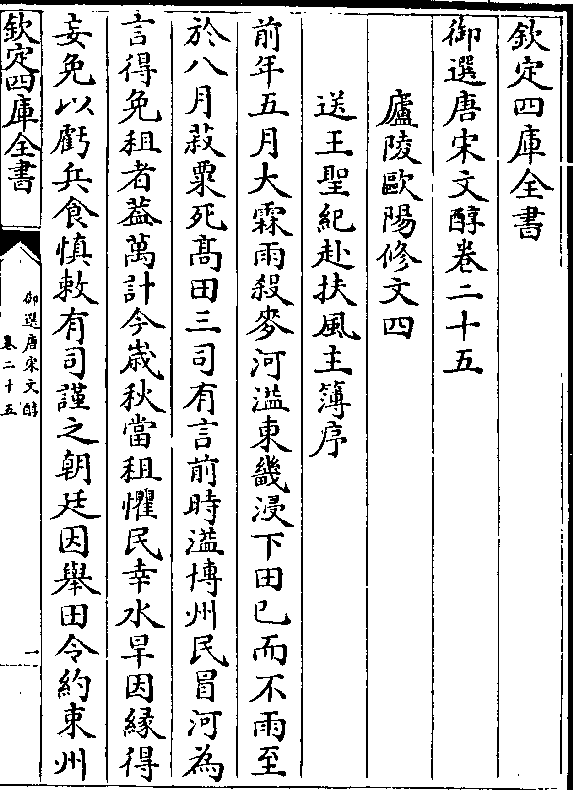 欽定四庫全書
御選唐宋文醇卷二十五
廬陵歐陽修文四
送王聖紀赴扶風主簿序
前年五月大霖雨殺麥河溢東畿浸下田已而不雨至
於八月菽粟死髙田三司有言前時溢博州民冒河為
言得免租者葢萬計今歳秋當租懼民幸水旱因緣得
妄免以虧兵食慎敕有司謹之朝廷因舉田令約束州
欽定四庫全書
御選唐宋文醇
卷二十五
一